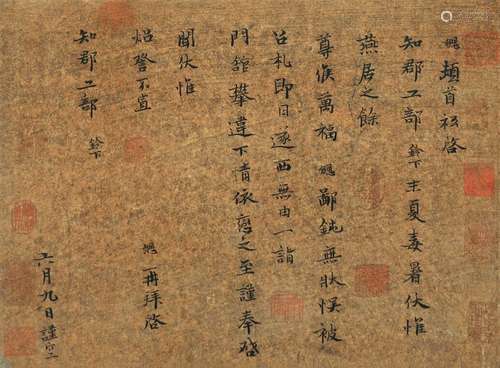 勰頓首祗啓
知郡工部鈐下末夏毒暑伏惟
燕居之餘
尊候萬福勰鄙鈍無狀誤被
召札即日遂西無由一詣
門館攀違下情依戀之至謹奉啓
聞伏惟
炤詧不宣
勰再拜啓
知郡工部鈐下
六月九日謹空